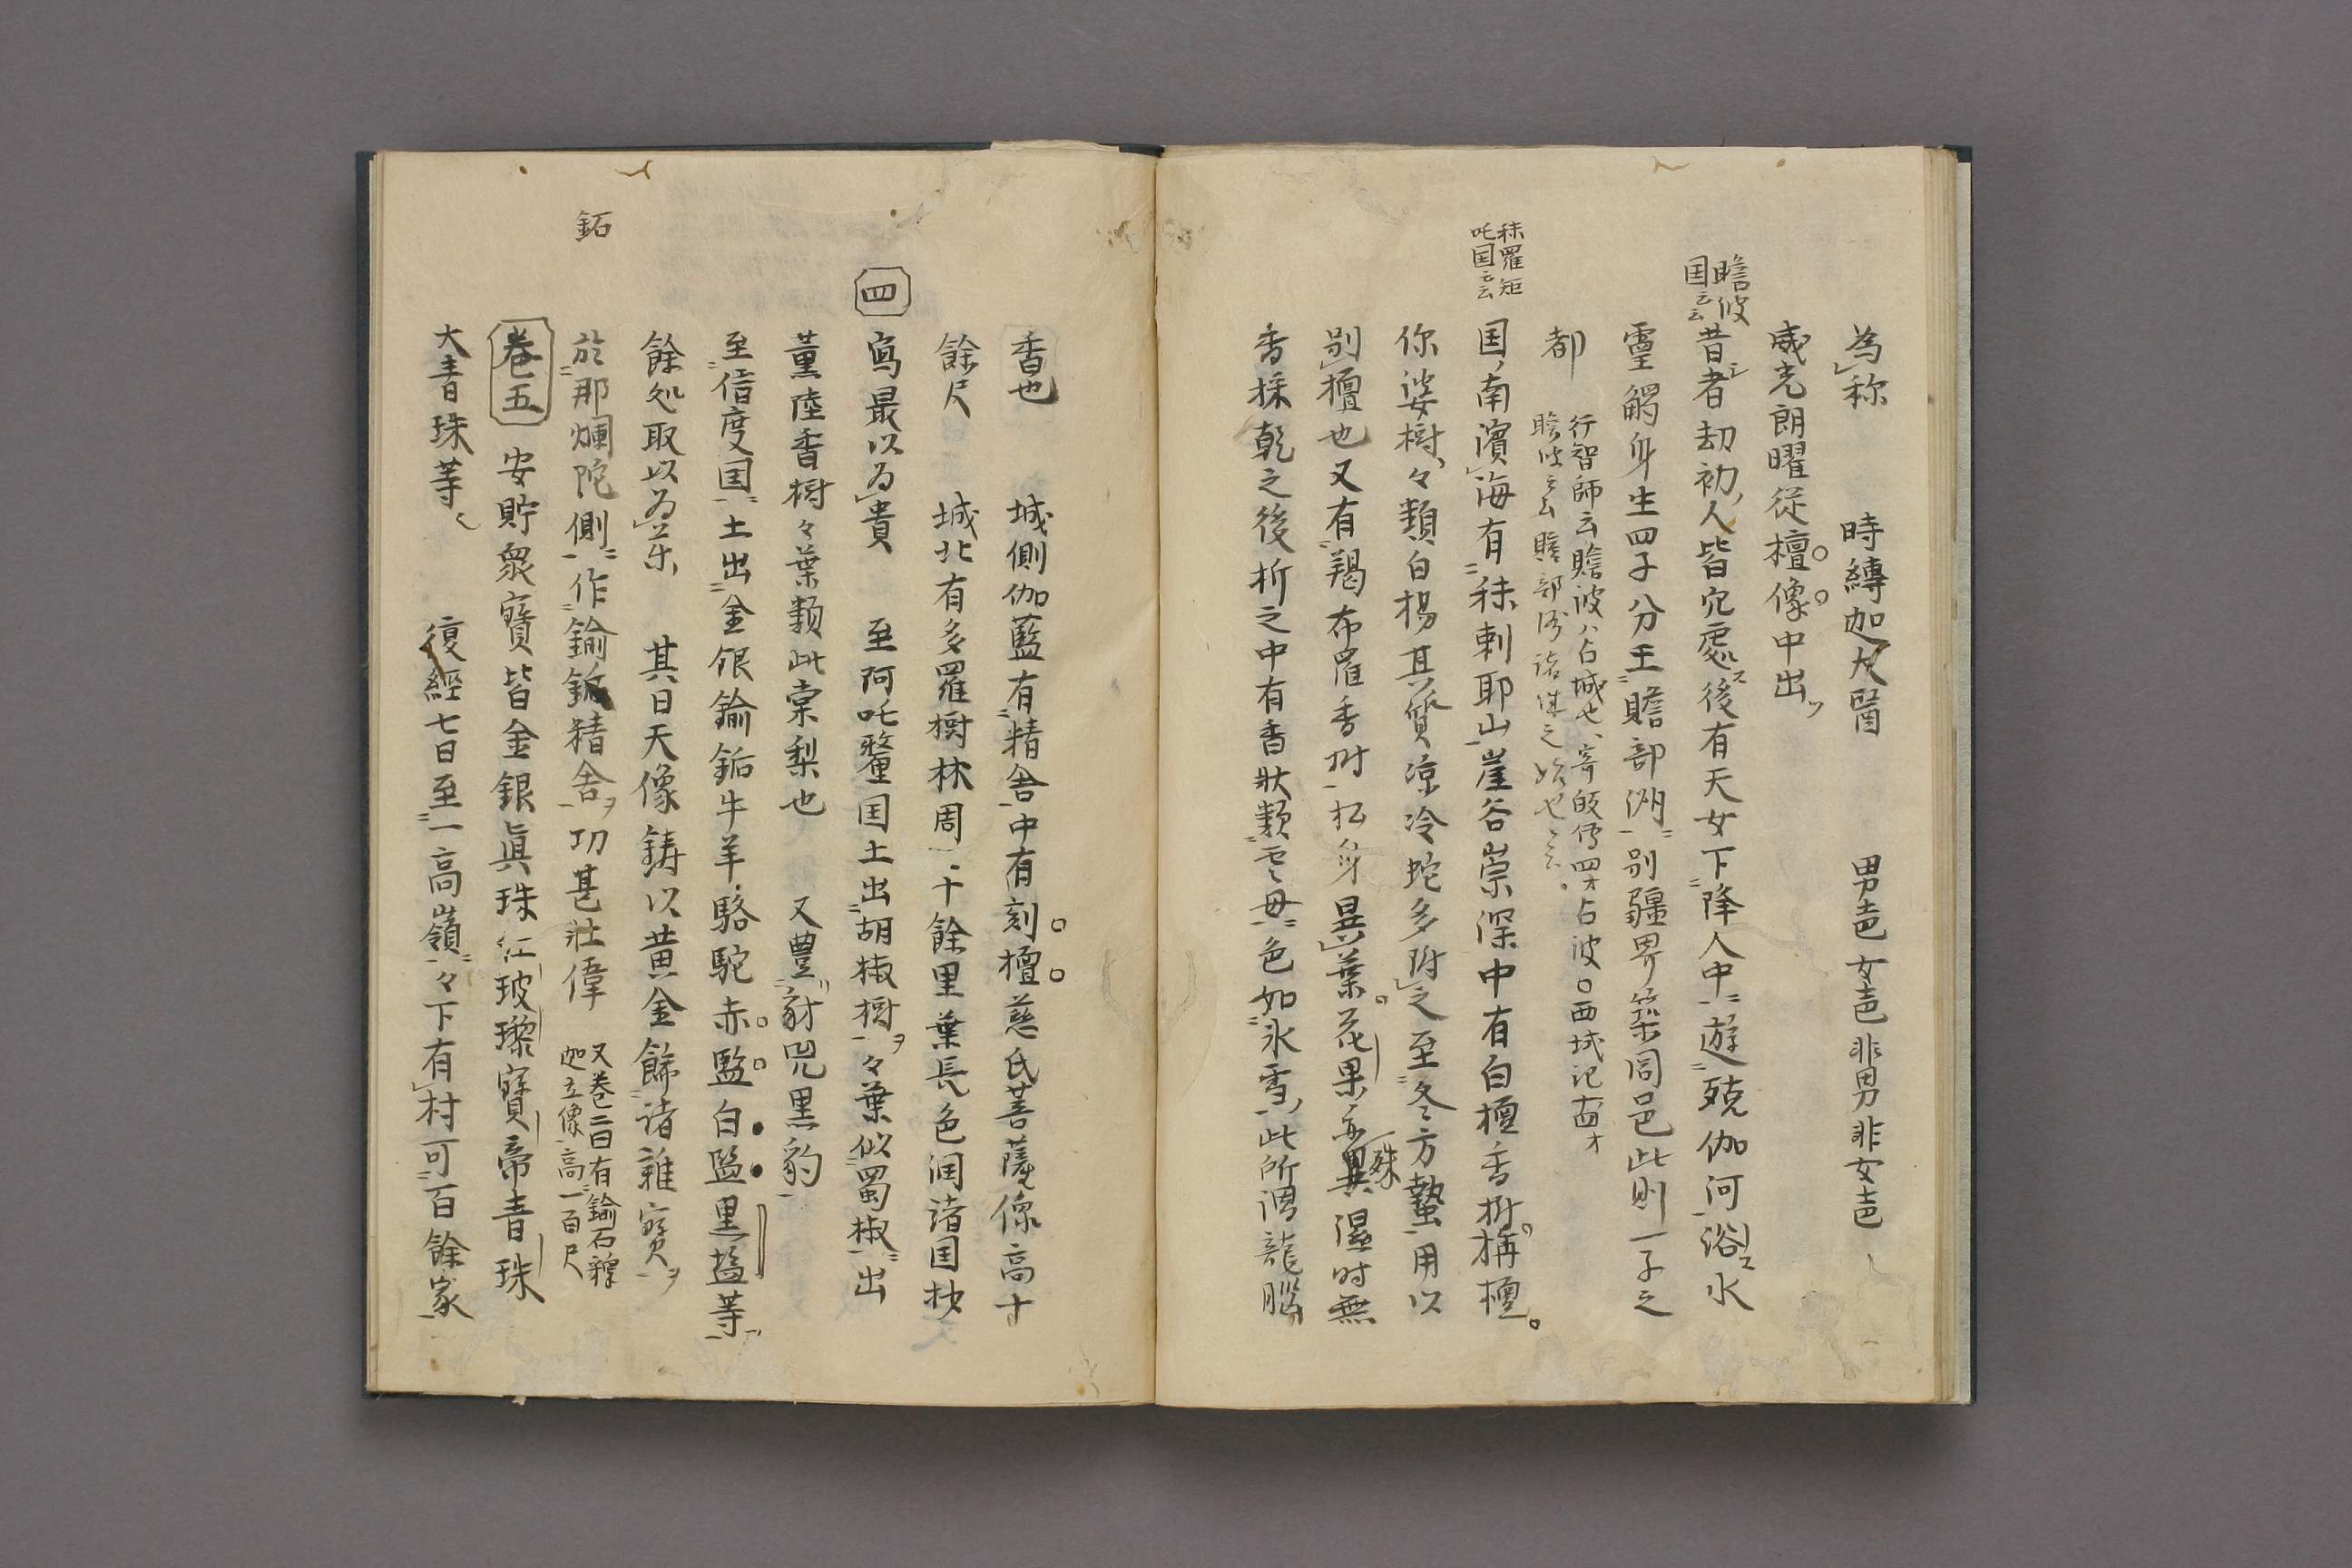 為称　時縛迦大醫　男声女声非男非女声
威光朗曜従檀像中出
瞻波
国云云
昔者劫初人皆穴處後有天女下降人中遊殑伽河浴水
靈觸身生四子分王贍部洲別疆界築同邑此則一子之
都
行智師云瞻波ハ占城也、寄皈傳四才占波○西域記十才
瞻波云云贍部洲諸城之始也云云
秣羅矩
吒国云云
国南濱海有秣剌耶山崖谷崇深中有白檀香樹栴檀
你娑樹々類白楊其質凉冷蛇多附之至冬方蟄用以
別檀也又有羯布羅香樹松身異葉花果亦異殊濕時無
香採乾之後析之中有香狀類雲母色如氷雪此所謂龍腦
香也　城側伽藍有精舍中有刻檀慈氏菩薩像高十
餘尺　城北有多羅樹林周三十餘里葉長色潤諸国抄
四
寫最以為貴　至阿吒釐国土出胡椒樹々葉似蜀椒出
薫陸香樹々葉類此棠梨也　又豊豺兕黒豹
至信度国土出金銀鍮鉐牛羊駱駝赤塩白塩黒塩等
餘処取以為薬　其日天像鋳以黄金餝諸雜寶
鉐
於那爛陀側作鍮鉐精舍功甚壯偉
又卷二曰有鍮石釋
迦立像高一百尺
卷五　安貯衆寶皆金銀眞珠红玻瓈寶帝青珠
大青珠等　復經七日至一高嶺々下有村可百餘家